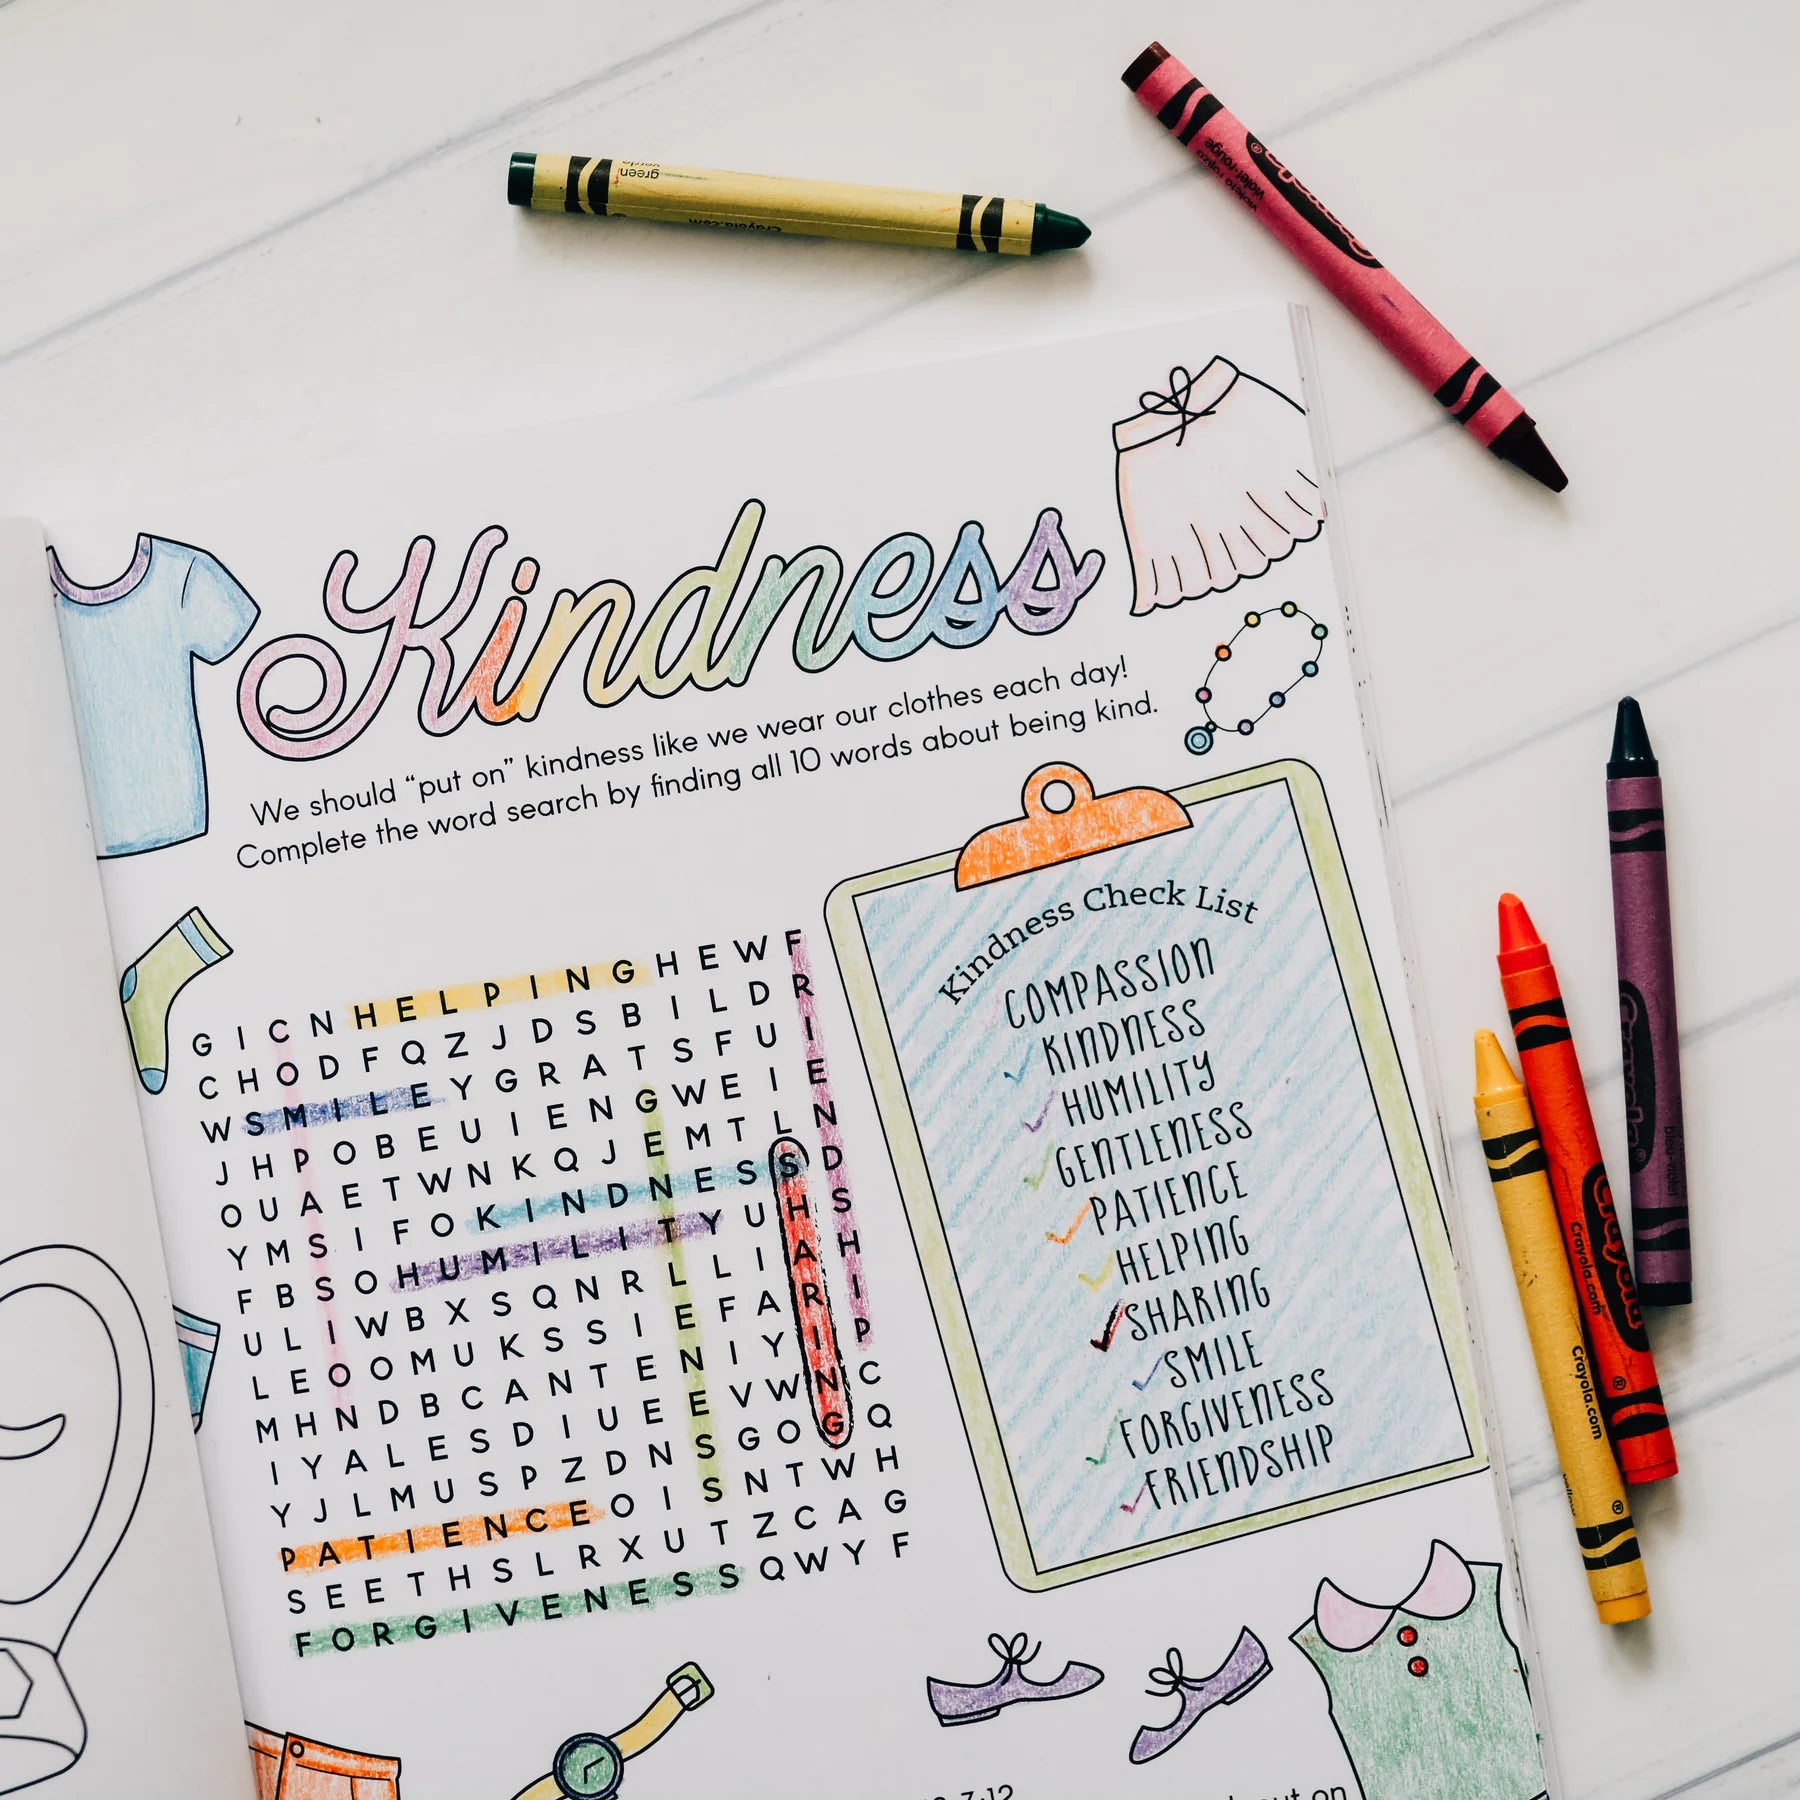 green
verde
Crayola.com
violeta rojizo
violet-rouge
Crayola
Kindness
We should “put on” kindness like we wear our clothes each day!
Complete the word search by finding all 10 words about being kind.
G I C N H E L P I N G H E W F
C H O D F Q Z J D S B I L D R
W S M I L E Y G R A T S F U I
J H P O B E U I E N G W E I E
O U A E T W N K Q J E M T L N
Y M S I F O K I N D N E S S D
F B S O H U M I L I T Y U H S
U L I W B X S Q N R L L I A H
L E O O M U K S S I E F A R I
M H N D B C A N T E N I Y I P
I Y A L E S D I U E E V W N C
Y J L M U S P Z D N S G O G Q
P A T I E N C E O I S N T W H
S E E T H S L R X U T Z C A G
F O R G I V E N E S S Q W Y F
Kindness Check List
COMPASSION
KINDNESS
HUMILITY
GENTLENESS
PATIENCE
HELPING
SHARING
SMILE
FORGIVENESS
FRIENDSHIP
Crayola
bleu-violet
Crayola
Crayola.com
Crayola.com
7:12
on